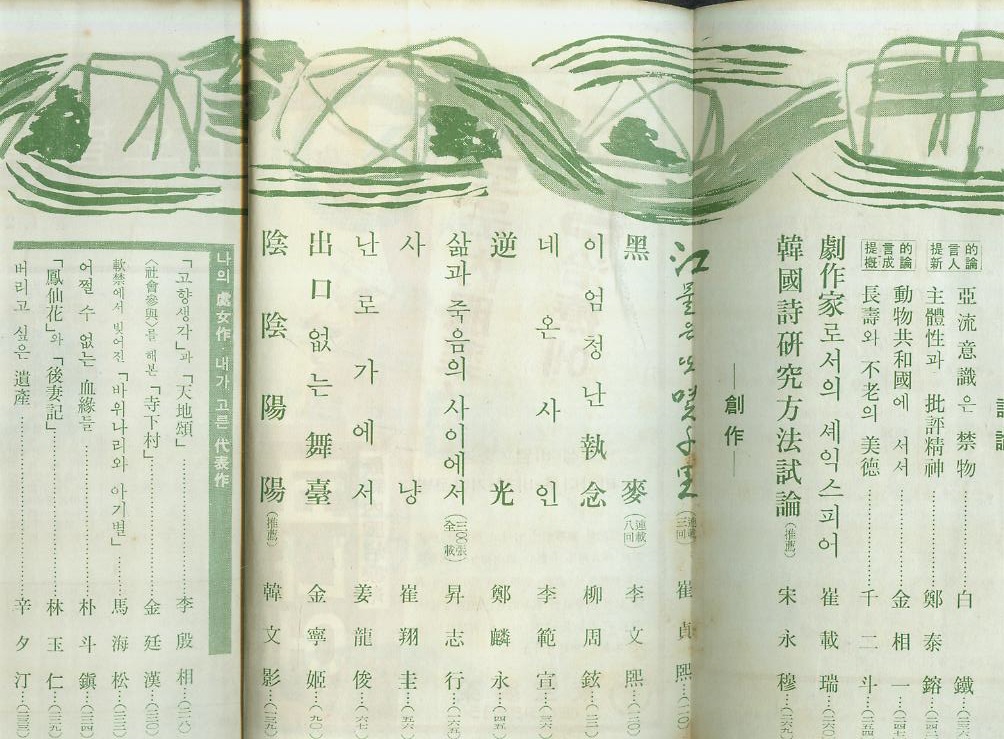 提言的概成論
提言的新人論
亞流意識은 禁物……白 鐵…(二三六)
主體性과 批評精神……鄭泰鎔…(二三八)
動物共和國에 서서……金相一…(二四七)
長壽와 不老의 美德……千二斗…(二五四)
劇作家로서의 셰익스피어 崔載瑞…(二六〇)
韓國詩硏究方法試論(推薦) 宋永穆…(二六九)
―創作―
江물은 또 몇 千里(連載三回) 崔貞熙…(一一〇)
黑麥(連載八回) 李文熙…(一二〇)
이 엄청난 執念 柳周鉉…(二二)
네 온 사 인 李範宣…(三六)
逆光 鄭麟永…(四五)
삶과 죽음의 사이에서(三〇〇張全載) 昇志行…(一六五)
사냥 崔翔圭…(五六)
난로가에서 姜龍俊…(六七)
出口없는 舞臺 金寧姬…(九〇)
陰陰陽陽(推薦) 韓文影…(三九)
나의 處女作·내가 고른 代表作
「고향생각」과 「天地頌」……李殷相…(三二八)
〈社會參與〉를 해본 「寺下村」……金廷漢…(三三〇)
軟禁에서 빚어진 「바위나리와 아기별」……馬海松…(三三二)
어쩔 수 없는 血緣들……朴斗鎭…(三三四)
「鳳仙花」와 「後妻記」……林玉仁…(三三九)
버리고 싶은 遺產……辛夕汀…(三三三)